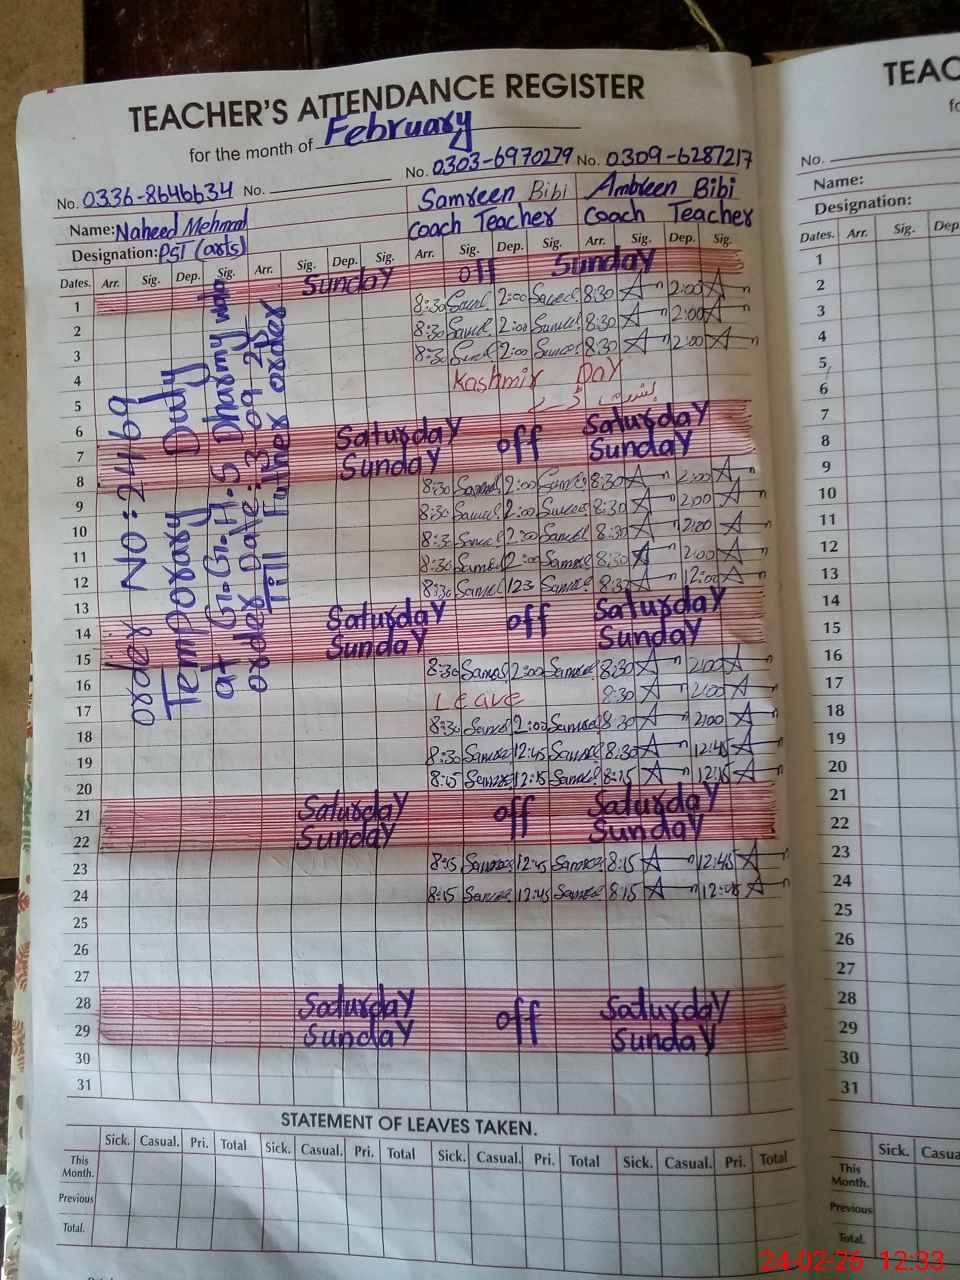 TEACHER'S ATTENDANCE REGISTER
for the month of February
No. 0336-8646634 No. No. 0303-6970279 No. 0309-6287217
Name: Naheed Mehmad Samreen Bibi Ambreen Bibi
Designation: PST (arts) Coach Teacher Coach Teacher
Dates. Arr. Sig. Dep. Sig. Arr. Sig. Dep. Sig. Arr. Sig. Dep. Sig. Arr. Sig. Dep. Sig.
order NO: 2469
Temporary Duty
at G.G.H.S Dharmy
order Date: 3 09 25
Till Further order
1 Sunday off Sunday
2 8:30 2:00 8:30 2:00
3 8:30 2:00 8:30 2:00
4 8:30 2:00 8:30 2:00
5 Kashmir Day
6
7 Saturday off Saturday
8 Sunday Sunday
9 8:30 2:00 8:30 2:00
10 8:30 2:00 8:30 2:00
11 8:30 2:00 8:30 2:00
12 8:30 2:00 8:30 2:00
13 8:30 8:30 12:00
14 Saturday off Saturday
15 Sunday Sunday
16 8:30 2:00 8:30 2:00
17 Leave 8:30 2:00
18 8:30 2:00 8:30 2:00
19 8:30 12:45 8:30 12:45
20 8:15 12:15 8:15 12:15
21 Saturday off Saturday
22 Sunday Sunday
23 8:15 12:45 8:15 12:45
24 8:15 12:45 8:15
25
26
27
28 Saturday off Saturday
29 Sunday Sunday
30
31
STATEMENT OF LEAVES TAKEN.
Sick. Casual. Pri. Total Sick. Casual. Pri. Total Sick. Casual. Pri. Total Sick. Casual. Pri. Total
This Month.
Previous
Total.
TEAC
No.
Name:
Designation:
Dates. Arr. Sig. Dep
1
2
3
4
5
6
7
8
9
10
11
12
13
14
15
16
17
18
19
20
21
22
23
24
25
26
27
28
29
30
31
Sick. Casua
This Month.
Previous
Total.
24-02-26 12:33